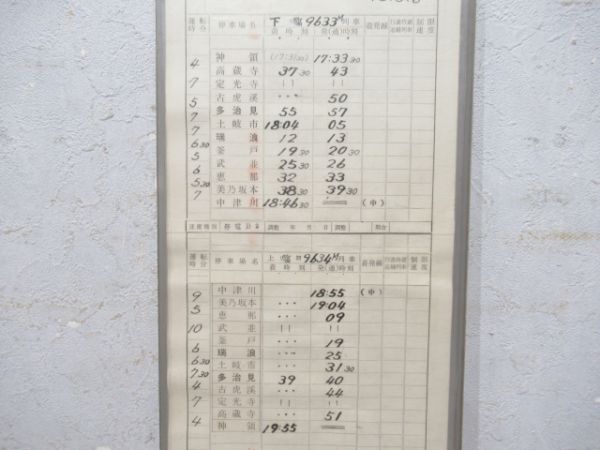 運転時分 停車場名 下 臨 9633M 列車 着発線 制限速度
着時刻 発(通)時刻
神領 (17:31 30) 17:33 30
4 高蔵寺 37 30 43
7 定光寺 〃 〃
古虎渓 ・・・ 50
5 多治見 55 57
7 土岐市 18:04 05
7 瑞浪 12 13
6 30 釜戸 19 30 20 30
5 武並 25 30 26
6 恵那 32 33
5 30 美乃坂本 38 30 39 30
7 中津川 18:46 30 (中)
速度種別 停電D2 調整 年 月 日 調整 期
運転時分 停車場名 上 臨 9634M 列車 着発線 制限速度
着時刻 発(通)時刻
中津川 18:55 (中)
9 美乃坂本 ・・・ 19:04
5 恵那 ・・・ 09
武並 〃 〃
10 釜戸 ・・・ 19
6 瑞浪 ・・・ 25
6 30 土岐市 ・・・ 31 30
7 30 多治見 39 40
4 古虎渓 ・・・ 44
定光寺 〃 〃
7 高蔵寺 ・・・ 51
4 神領 19:55